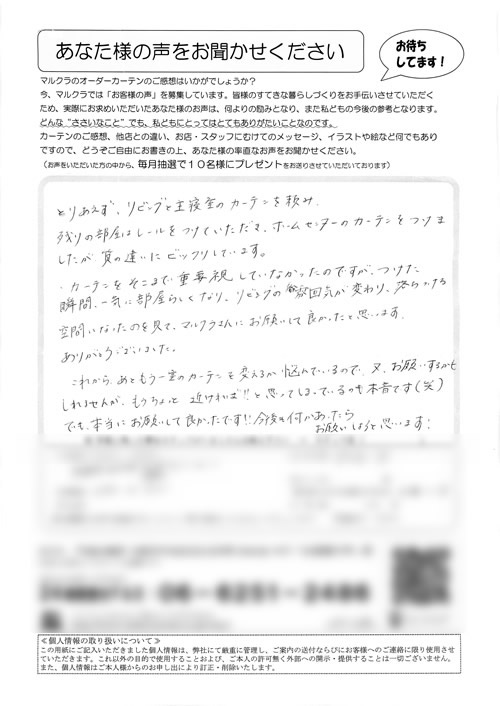 あなた様の声をお聞かせください
お待ち
してます!
マルクラのオーダーカーテンのご感想はいかがでしょうか?
今、マルクラでは「お客様の声」を募集しています。皆様のすてきな暮らしづくりをお手伝いさせていただく
ため、実際にお求めいただいたあなた様のお声は、何よりの励みとなり、また私どもの今後の参考となります。
どんな“ささいなこと”でも、私どもにとってはとてもありがたいことなのです。
カーテンのご感想、他店との違い、お店・スタッフにむけてのメッセージ、イラストや絵など何でもあり
ですので、どうぞご自由にお書きの上、あなた様の率直なお声をお聞かせください。
(お声をいただいた方の中から、毎月抽選で10名様にプレゼントをお送りさせていただいております)
とりあえず、リビングと主寝室のカーテンを頼み、
残りの部屋はレールをつけていただき、ホームセンターのカーテンをつけま
したが質の違いにビックリしています。
カーテンをそこまで重要視していなかったのですが、つけた
瞬間、一気に部屋らしくなり、リビングの雰囲気が変わり、落ちつける
空間になったのを見て、マルクラさんにお願いして良かったと思います。
ありがとうございました。
これから、あともう一室のカーテンを変えるか悩んでいるので、又、お願いするかも
しれませんが、もうちょっと近ければ!!と思ってしまっているのも本音です(笑)
でも、本当にお願いして良かったです!!今後も何かあったら
お願いしようと思います!
06-6251-2486
≪個人情報の取り扱いについて≫
この用紙にご記入いただきました個人情報は、弊社にて厳重に管理し、ご案内の送付ならびにお客様へのご連絡に限り使用させ
ていただきます。これ以外の目的で使用することおよび、ご本人の許可無く外部への開示・提供することは一切ございません。
また、個人情報はご本人様からのお申し出により訂正・削除いたします。